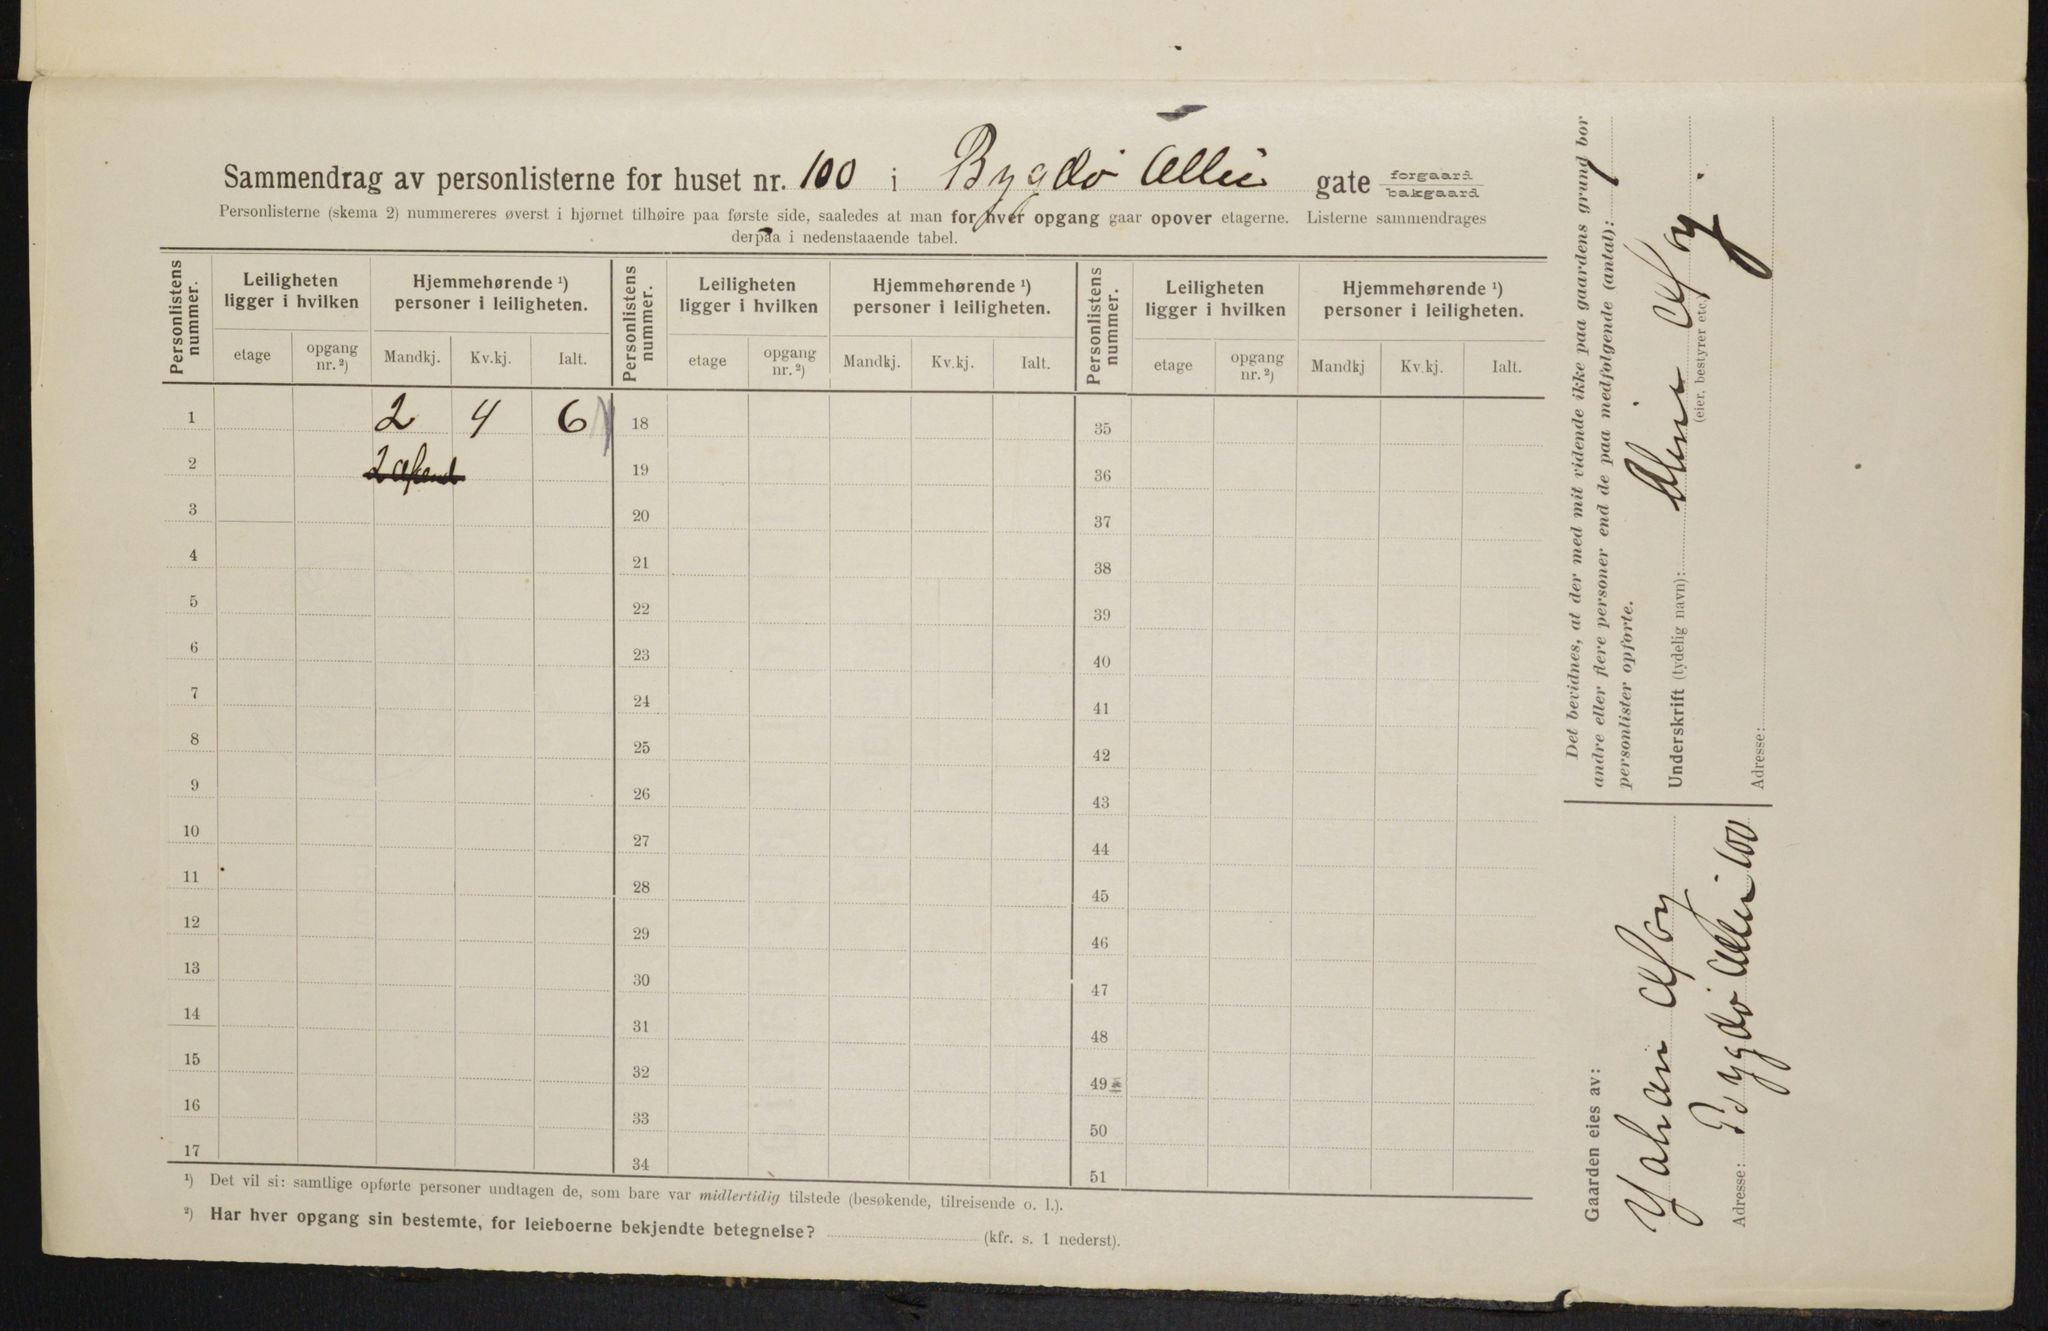 Sammendrag av personlisterne for huset nr. 100 i Bygdø Allée gate forgaard bakgaard
Personlisterne (skema 2) nummereres øverst i hjørnet tilhøire paa første side, saaledes at man for hver opgang gaar opover etagerne. Listerne sammendrages
derpaa i nedenstaaende tabel.
Personlistens nummer. Leiligheten ligger i hvilken Hjemmehørende ¹) personer i leiligheten. Personlistens nummer. Leiligheten ligger i hvilken Hjemmehørende ¹) personer i leiligheten. Personlistens nummer. Leiligheten ligger i hvilken Hjemmehørende ¹) personer i leiligheten.
etage opgang nr. ²) Mandkj. Kv.kj. Ialt. etage opgang nr. ²) Mandkj. Kv.kj. Ialt. etage opgang nr. ²) Mandkj Kv.kj. Ialt.
1 2 4 6 18 35
2 2 19 36
3 20 37
4 21 38
5 22 39
6 23 40
7 24 41
8 25 42
9 26 43
10 27 44
11 28 45
12 29 46
13 30 47
14 31 48
15 32 49
16 33 50
17 34 51
¹) Det vil si: samtlige opførte personer undtagen de, som bare var midlertidig tilstede (besøkende, tilreisende o. l.).
²) Har hver opgang sin bestemte, for leieboerne bekjendte betegnelse? (kfr. s. 1 nederst).
Det bevidnes, at der med mit vidende ikke paa gaardens grund bor
andre eller flere personer end de paa medfølgende (antal):
personlister opførte.
Underskrift (tydelig navn):
(eier, bestyrer etc.)
Adresse:
Gaarden eies av:
Johan
Adresse: Bygdø Allée 100